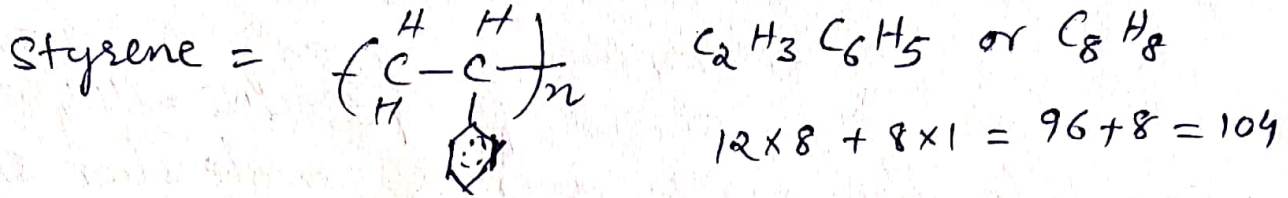 Styrene = ( C - C )n C2H3C6H5 or C8H8
H H
H
12×8 + 8×1 = 96+8 = 104